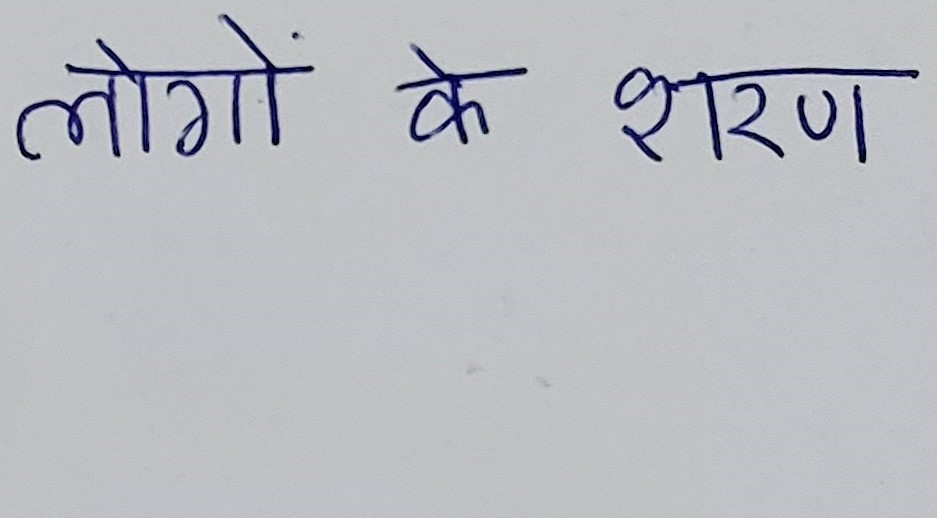 लोगों के शरण